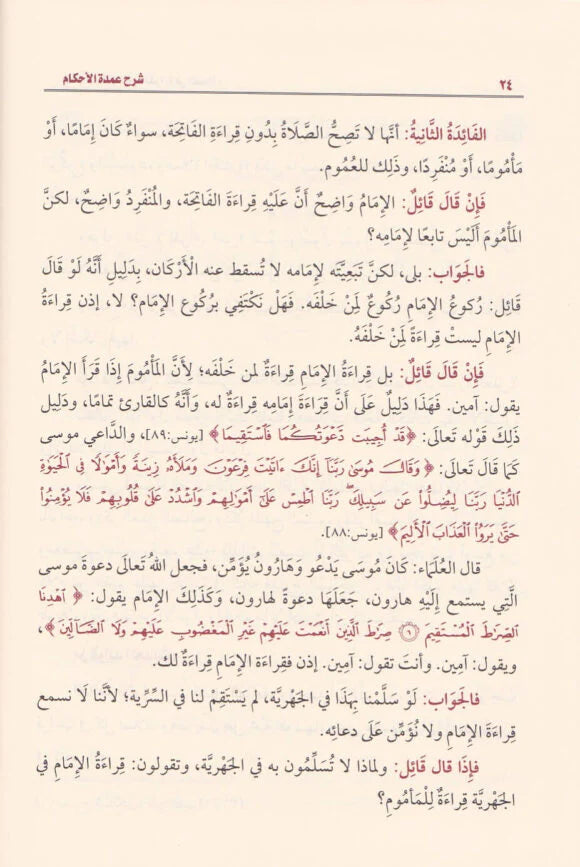 ٢٤
شرح عمدة الأحكام
الفَائِدَةُ الثَّانِيةُ: أنَّها لا تَصِحُّ الصَّلَاةُ بِدُونِ قِراءةِ الفَاتِحَة، سواءٌ كَانَ إمَامًا، أَوْ
مَأْمُومًا، أَوْ مُنْفَرِدًا، وذَلِك للعُمُوم.
فَإِنْ قَالَ قَائِلٌ: الإمَامُ وَاضِحٌ أنَّ عَلَيْهِ قِراءَةَ الفَاتِحَة، والمُنْفَرِدُ وَاضِحٌ، لكنَّ
المَأْمُومَ أَلَيْسَ تابعًا لإمَامِه؟
فالجَوَاب: بلى، لكنَّ تَبَعِيَّتَه لإمَامه لا تُسقط عنه الأَرْكَان، بِدَلِيلِ أنَّهُ لَوْ قَالَ
قَائِل: رُكوعُ الإِمَامِ رُكُوعٌ لِمَنْ خَلْفَه. فَهَلْ نَكْتَفِي بِرُكُوعِ الإِمَام؟ لا، إذن قِرَاءةُ
الإِمَامِ ليستْ قِراءَةً لِمَنْ خَلْفَهُ.
فَإِنْ قَالَ قَائِلٌ: بل قِراءَةُ الإِمَامِ قِراءَةٌ لمن خَلْفَه؛ لِأَنَّ المَأْمُومَ إِذَا قَرَأَ الإِمَامُ
يقول: آمين. فَهَذَا دَلِيلٌ عَلَى أَنَّ قِرَاءَةَ إِمَامِه قِراءَةٌ له، وَأَنَّهُ كالقارئ تمامًا، ودَلِيل
ذَلِكَ قَوْله تَعالَى: ﴿قَدْ أُجِيبَت دَّعْوَتُكُمَا فَٱسْتَقِيمَا﴾ [يونس:٨٩]، والدَّاعي موسى
كَمَا قَالَ تَعالَى: ﴿وَقَالَ مُوسَىٰ رَبَّنَآ إِنَّكَ ءَاتَيْتَ فِرْعَوْنَ وَمَلَأَهُۥ زِينَةً وَأَمْوَٰلًا فِي ٱلْحَيَوٰةِ
ٱلدُّنْيَا رَبَّنَا لِيُضِلُّوا۟ عَن سَبِيلِكَ ۖ رَبَّنَا ٱطْمِسْ عَلَىٰٓ أَمْوَٰلِهِمْ وَٱشْدُدْ عَلَىٰ قُلُوبِهِمْ فَلَا يُؤْمِنُوا۟
حَتَّىٰ يَرَوُا۟ ٱلْعَذَابَ ٱلْأَلِيمَ﴾ [يونس:٨٨].
قال العُلَمَاء: كَانَ مُوسَى يَدْعُو وَهَارُونُ يُؤَمِّن، فجعل اللهُ تَعالَى دعوةَ موسى
الَّتِي يستمع إِلَيْهِ هارون، جَعَلَهَا دعوةً لهارون، وَكَذَلِكَ الإمام يقول: ﴿ٱهْدِنَا
ٱلصِّرَٰطَ ٱلْمُسْتَقِيمَ ۝٦ صِرَٰطَ ٱلَّذِينَ أَنْعَمْتَ عَلَيْهِمْ غَيْرِ ٱلْمَغْضُوبِ عَلَيْهِمْ وَلَا ٱلضَّآلِّينَ﴾،
ويقول: آمين. وأنتَ تقول: آمين. إذن فقِراءة الإِمَامِ قِراءَةٌ لك.
فالجَوَاب: لَوْ سَلَّمْنا بِهَذَا في الجَهْرِيَّة، لم يَسْتَقِمْ لنا في السِّرِّية؛ لأَنَّنا لَا نسمع
قِراءَةَ الإِمَامِ ولا نُؤَمِّن عَلَى دعائِه.
فإِذَا قال قَائِل: ولماذا لا تُسَلِّمُون به في الجَهْرِيَّة، وتقولون: قِراءَةُ الإِمَامِ في
الجَهْرِيَّة قِراءَةٌ لِلْمَأمُومِ؟